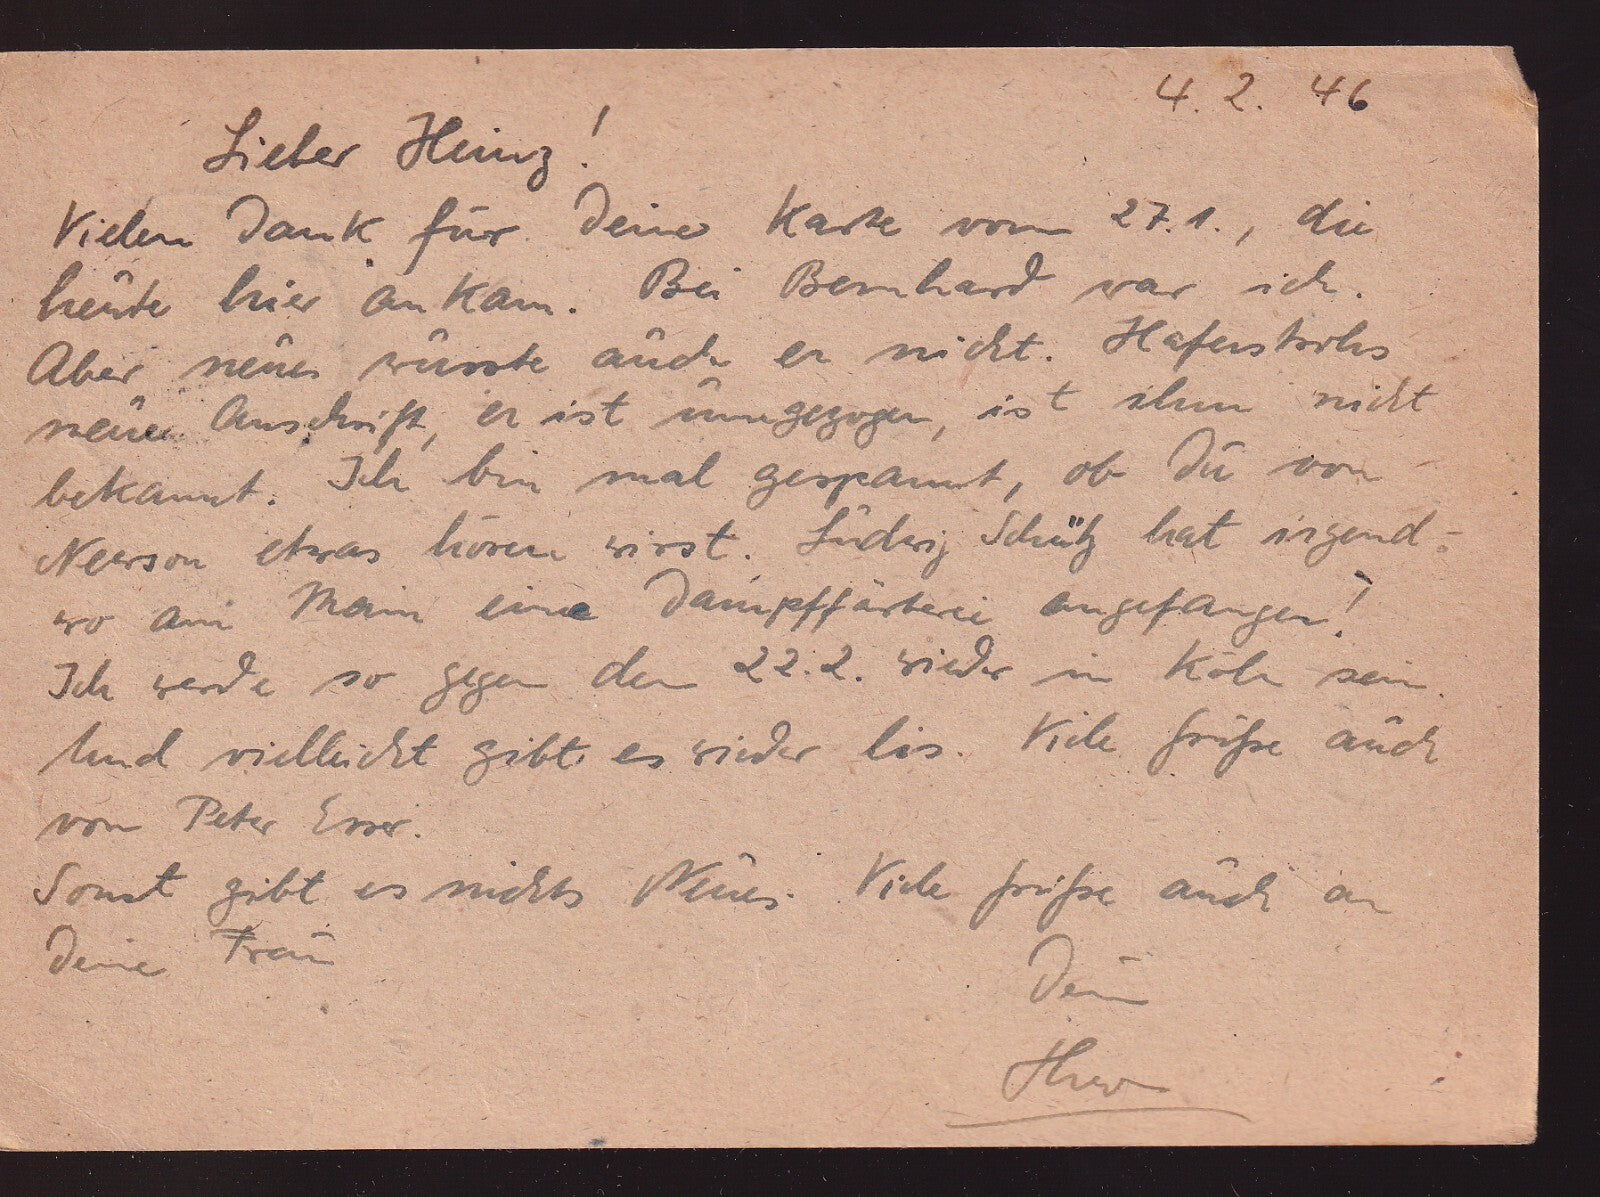 4. 2. 46
Lieber Heinz!
Vielen Dank für Deine Karte vom 27.1., die
heute hier ankam. Bei Bernhard war ich.
Aber neues wusste auch er nicht. Haferstrohs
neue Anschrift, er ist umgezogen, ist ihm nicht
bekannt. Ich bin mal gespannt, ob Du von
etwas hören wirst. Ludwig Schütz hat irgend-
wo am Main eine Dampffärberei angefangen!
Ich werde so gegen den 22.2. wieder in Köln sein.
Und vielleicht gibt es wieder Eis. Viele Grüße auch
von Peter Esser.
Sonst gibt es nichts Neues. Viele Grüße auch an
Deine Frau
Dein